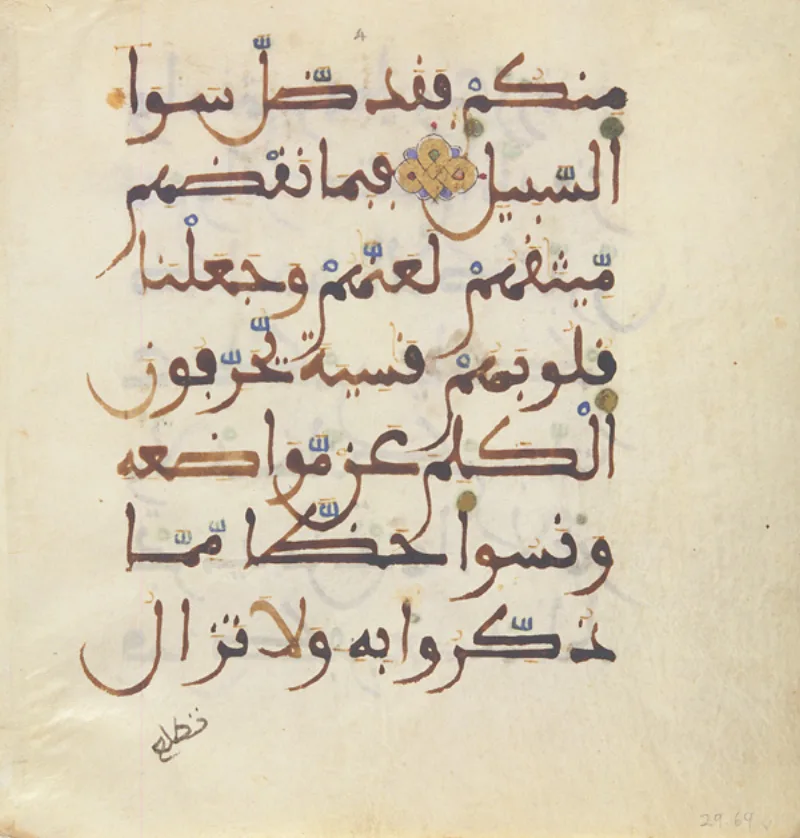 4
منكم فقد ضّل سوا
السّبيل فبما نقضهم
مّيثقهم لعنّهم وجعلْنا
قلوبهم قسية يّحرّفون
الْكلم عن مّواضعه
ونسوا حظّا مّمّا
ذكّروا به ولا تزال
تطلع
29.64